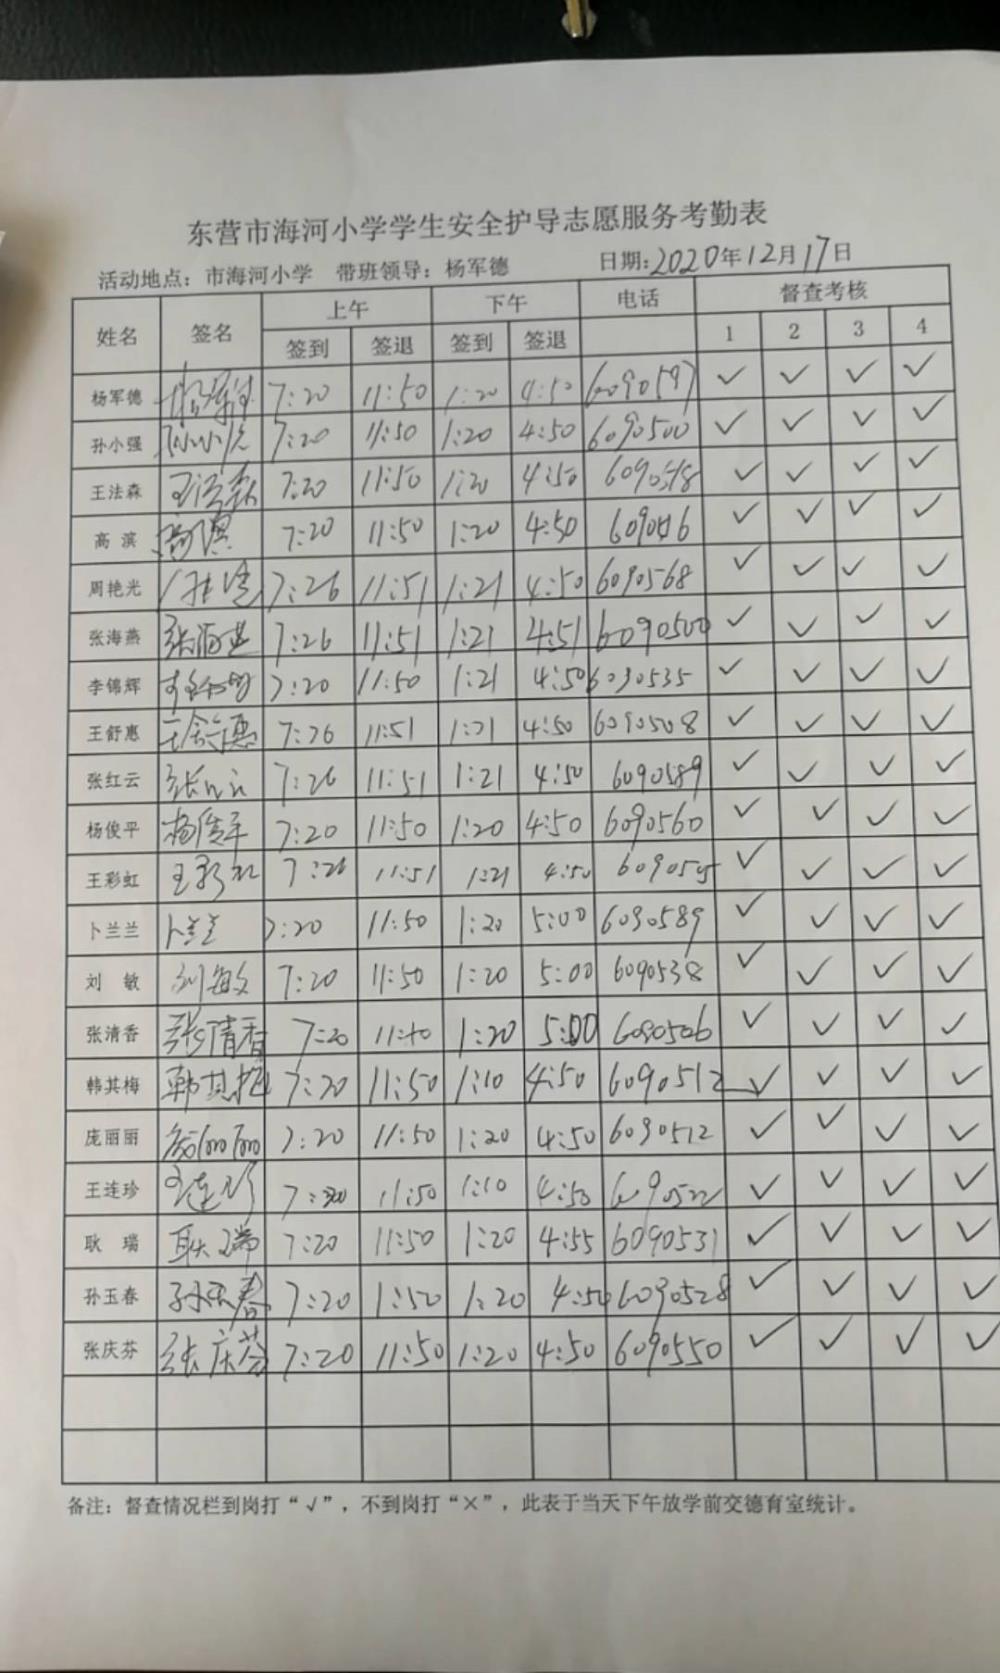 东营市海河小学学生安全护导志愿服务考勤表
活动地点：市海河小学 带班领导：杨军德 日期：2020年12月17日
姓名 签名 上午 下午 电话 督查考核
签到 签退 签到 签退 1 2 3 4
杨军德 7:20 11:50 1:20 4:50 6090597 ✓ ✓ ✓ ✓
孙小强 7:20 11:50 1:20 4:50 6090500 ✓ ✓ ✓ ✓
王法森 王法森 7:20 11:50 1:20 4:50 ✓ ✓ ✓ ✓
高 滨 高滨 7:20 11:50 1:20 4:50 ✓ ✓ ✓ ✓
周艳光 7:26 11:51 1:21 4:50 6090568 ✓ ✓ ✓ ✓
张海燕 张海燕 7:26 11:51 1:21 4:51 6090500 ✓ ✓ ✓ ✓
李锦辉 李锦辉 7:20 11:50 1:21 4:50 6090535 ✓ ✓ ✓ ✓
王舒惠 王舒惠 7:26 11:51 1:21 4:50 6090508 ✓ ✓ ✓ ✓
张红云 张红云 7:26 11:51 1:21 4:50 6090589 ✓ ✓ ✓ ✓
杨俊平 杨俊平 7:20 11:50 1:20 4:50 6090560 ✓ ✓ ✓ ✓
王彩虹 王彩虹 7:26 11:51 1:21 4:50 ✓ ✓ ✓ ✓
卜兰兰 卜兰兰 7:20 11:50 1:20 5:00 6090589 ✓ ✓ ✓ ✓
刘 敏 刘敏 7:20 11:50 1:20 5:00 6090538 ✓ ✓ ✓ ✓
张清香 张清香 7:20 11:40 1:20 5:00 6090506 ✓ ✓ ✓ ✓
韩其梅 韩其梅 7:20 11:50 1:10 4:50 6090512 ✓ ✓ ✓ ✓
庞丽丽 庞丽丽 7:20 11:50 1:20 4:50 6090512 ✓ ✓ ✓ ✓
王连珍 王连珍 7:20 11:50 1:10 4:50 6090522 ✓ ✓ ✓ ✓
耿 瑞 耿瑞 7:20 11:50 1:20 4:55 6090531 ✓ ✓ ✓ ✓
孙玉春 孙玉春 7:20 1:50 1:20 4:50 6090528 ✓ ✓ ✓ ✓
张庆芬 张庆芬 7:20 11:50 1:20 4:50 6090550 ✓ ✓ ✓ ✓
备注：督查情况栏到岗打“√”，不到岗打“×”，此表于当天下午放学前交德育室统计。